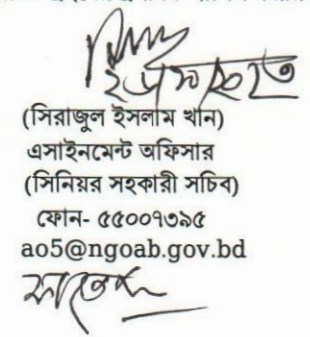 (সিরাজুল ইসলাম খান)
এসাইনমেন্ট অফিসার
(সিনিয়র সহকারী সচিব)
ফোন- ৫৫০০৭৩৯৫
ao5@ngoab.gov.bd